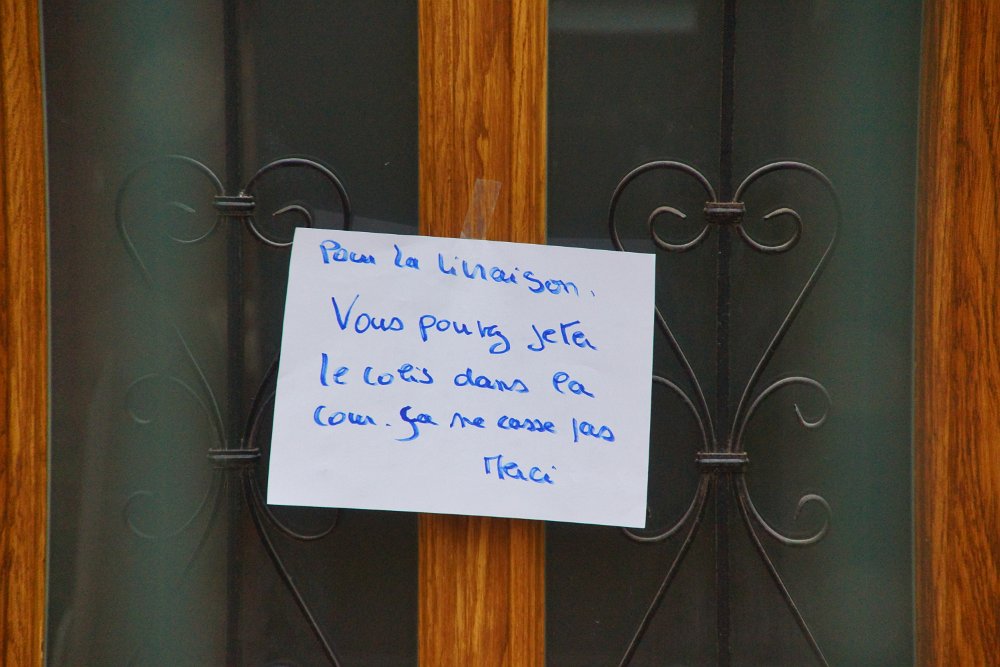 Pour la livraison.
Vous pouvez jeter
le colis dans la
cour. ça ne casse pas
Merci